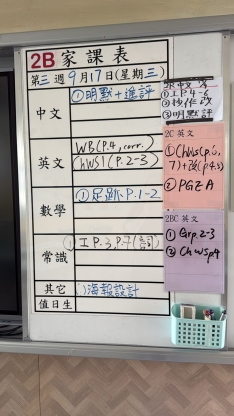 2B 家課表
第三週 9月17日(星期三)
中文
①明默+進評
英文
WB(P.4, corr.)
ChWS1(P.2-3)
數學
①足跡 P.1-2
常識
①IP.3, P.7(訂)
其它
①海報設計
值日生
①IP4-6
②
改
③明默評
2C 英文
①ChWs(p.6,
7)+改(p.4,5)
②PGZA
2BC 英文
①Grp.2-3
②Chwsp4